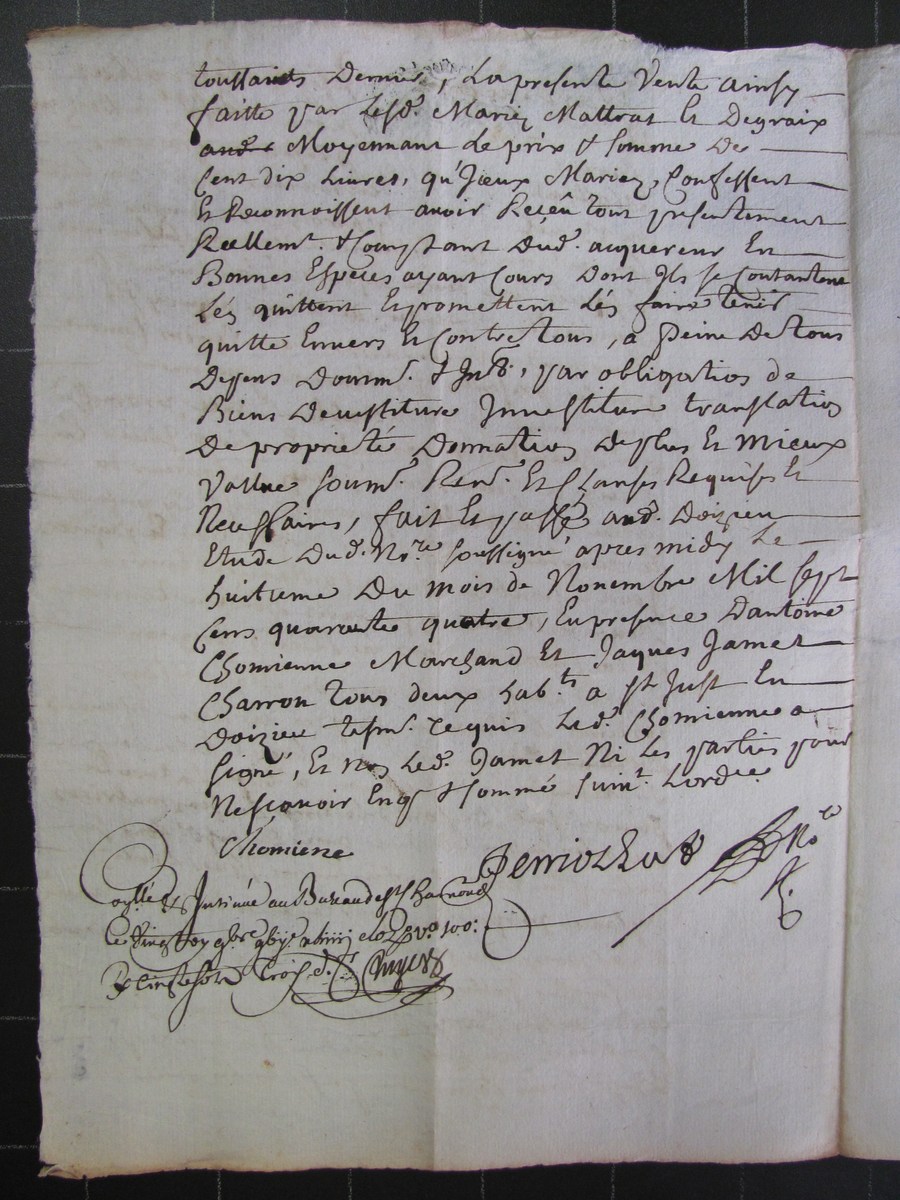 toussaints Dernier, La presente Vente ainsy
faitte par Lesd. Mariez Mattrat Et Degraix
Moyennant Le prix & somme De
Cent dix Livres, qu'Jceux Mariez, Confessent
Et Reconnoissent avoir Reçeû tout presentement
Reellemt. & Comptant Dud. acquereur En
Bonnes Especes ayant Cours Dont Jls se Contantent
Lés quittent Et promettent Lés faire tenir
quitte Envers Et Contre tous, a peine De tous
Depens Domm. & Jnts, par obligation de
Biens Devestiture Jnvestiture translation
De proprieté Donnation De plus Et Mieux
Vallue soum. Ren. Et Clauses Requises Et
Necessaires, fait Et passé aud. Doizieu
Etude Dud. Nore. soussigné apres midy Le
huitieme Du mois de Novembre Mil sept
Cens quarante quatre, En presence D'antoine
Chomienne Marchand Et Jaques Jamet
Charron tous deux habts. a St Just En
Doizieu tesm. requis Led. Chomienne a
signé, Et non Led. Jamet Ni Les parties pour
Ne scavoir Enqs & sommé suivt. Lordce.
Chomiene
No.re
Insinué au Bureau de St Chamond